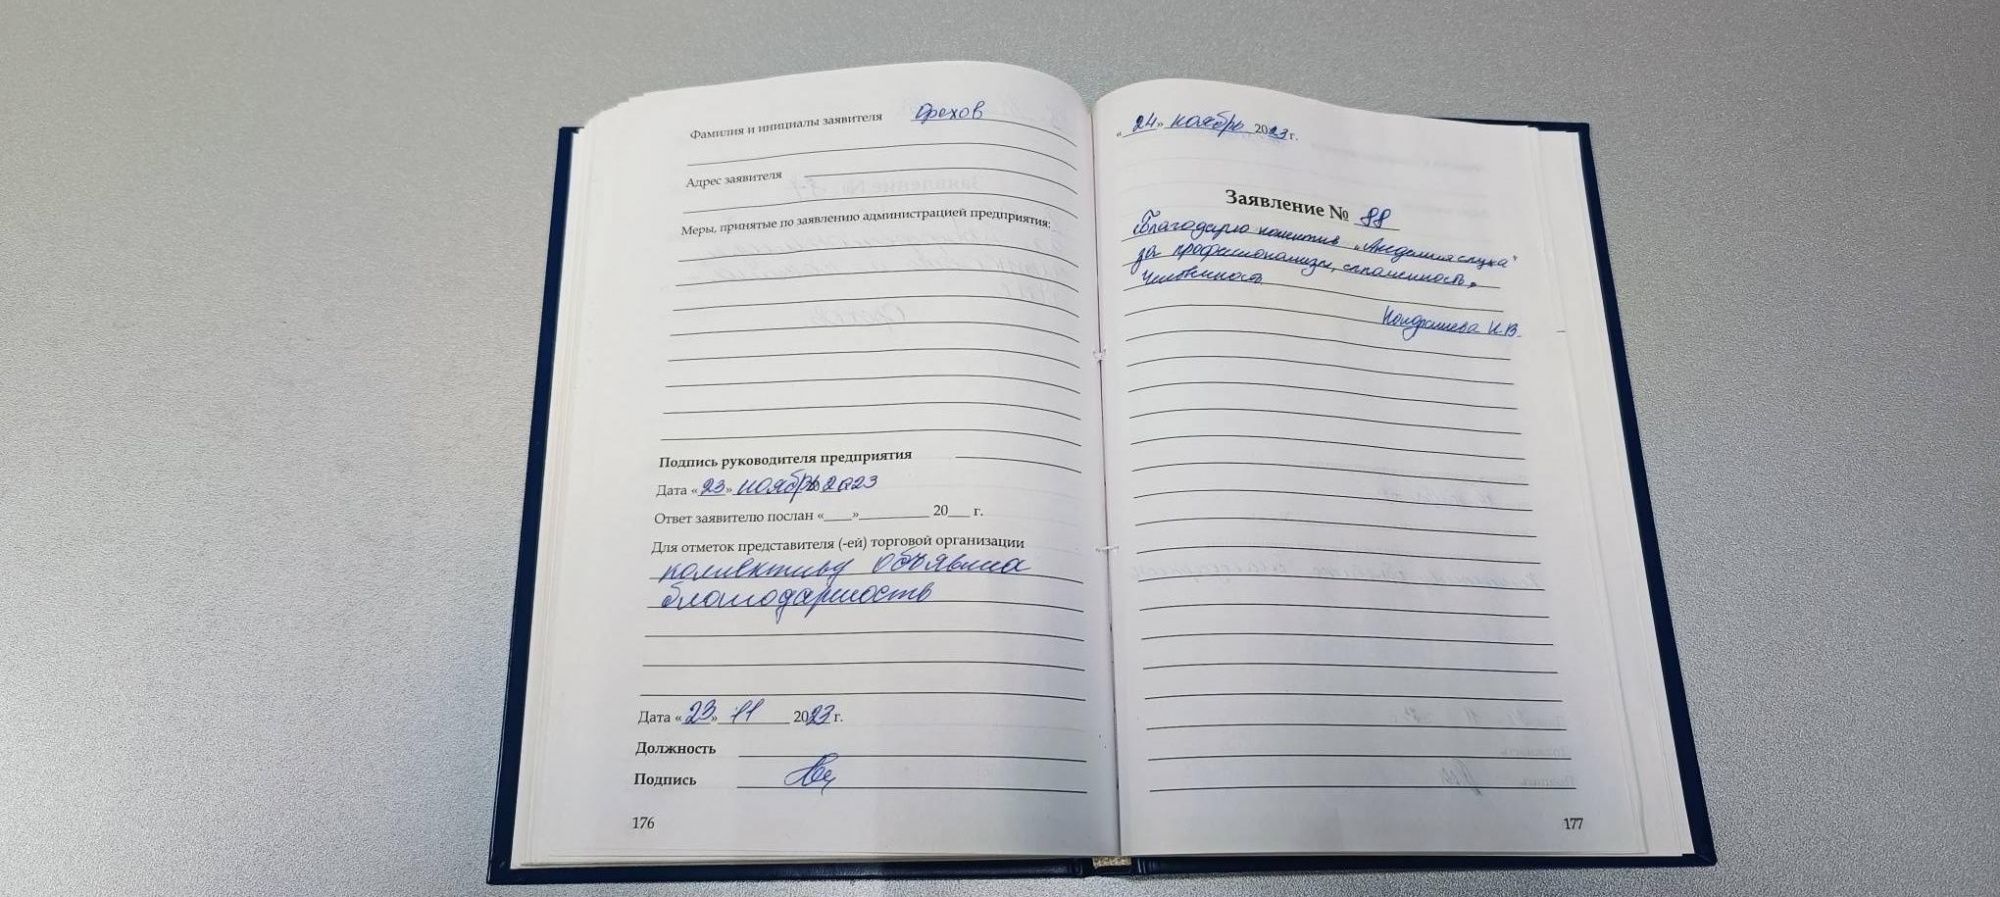 Фамилия и инициалы заявителя Орехов
Адрес заявителя
Меры, принятые по заявлению администрацией предприятия:
Подпись руководителя предприятия
Дата «23» ноябрь 2023
Ответ заявителю послан «____»__________ 20___ г.
Для отметок представителя (-ей) торговой организации
коллективу объявлена
благодарность
Дата «23» 11 2023 г.
Должность
Подпись
176
«24» ноябрь 2023 г.
Заявление № 88
Благодарю коллектив „Академия слуха"
за профессионализм, слаженность,
Человечность
И.В.
177